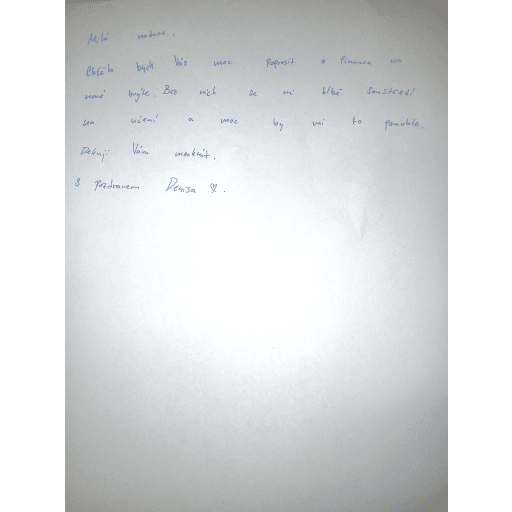 Milá nadace.
Chtěla bych Vás moc poprosit o finance na
nové brýle. Bez nich se mi blbě soustředí
na učení a moc by mi to pomohlo.
Děkuji Vám mockrát.
S pozdravem Denisa